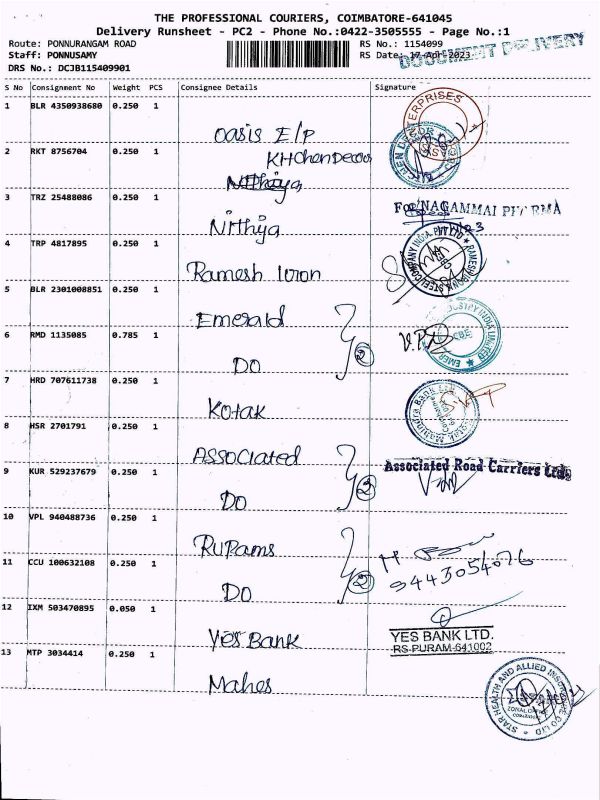 THE PROFESSIONAL COURIERS, COIMBATORE-641045
Delivery Runsheet - PC2 - Phone No.:0422-3505555 - Page No.:1
Route: PONNURANGAM ROAD
RS No.: 1154099
Staff: PONNUSAMY
RS Date: 17-Apr-2023
DOCUMENT DELIVERY
DRS No.: DCJB115409901
S No Consignment No Weight PCS Consignee Details Signature
1 BLR 4350938680 0.250 1
Oasis E/P
KHChenDecor
2 RKT 8756704 0.250 1
Nithiya
3 TRZ 25488086 0.250 1
For NAGAMMAI
Nithiya
4 TRP 4817895 0.250 1
Ramesh Iron
5 BLR 2301008851 0.250 1
Emerald
6 RMD 1135085 0.785 1
2
DO
7 HRD 707611738 0.250 1
Kotak
8 HSR 2701791 0.250 1
Associated
Associated Road Carriers Ltd.
9 KUR 529237679 0.250 1
2
DO
10 VPL 940488736 0.250 1
Rupams
11 CCU 100632108 0.250 1
9443054076
2
DO
12 IXM 503470895 0.050 1
Yes Bank
YES BANK LTD.
RS PURAM-641002
13 MTP 3034414 0.250 1
Mahes
STAR HEALTH AND ALLIED INSURANCE CO LTD